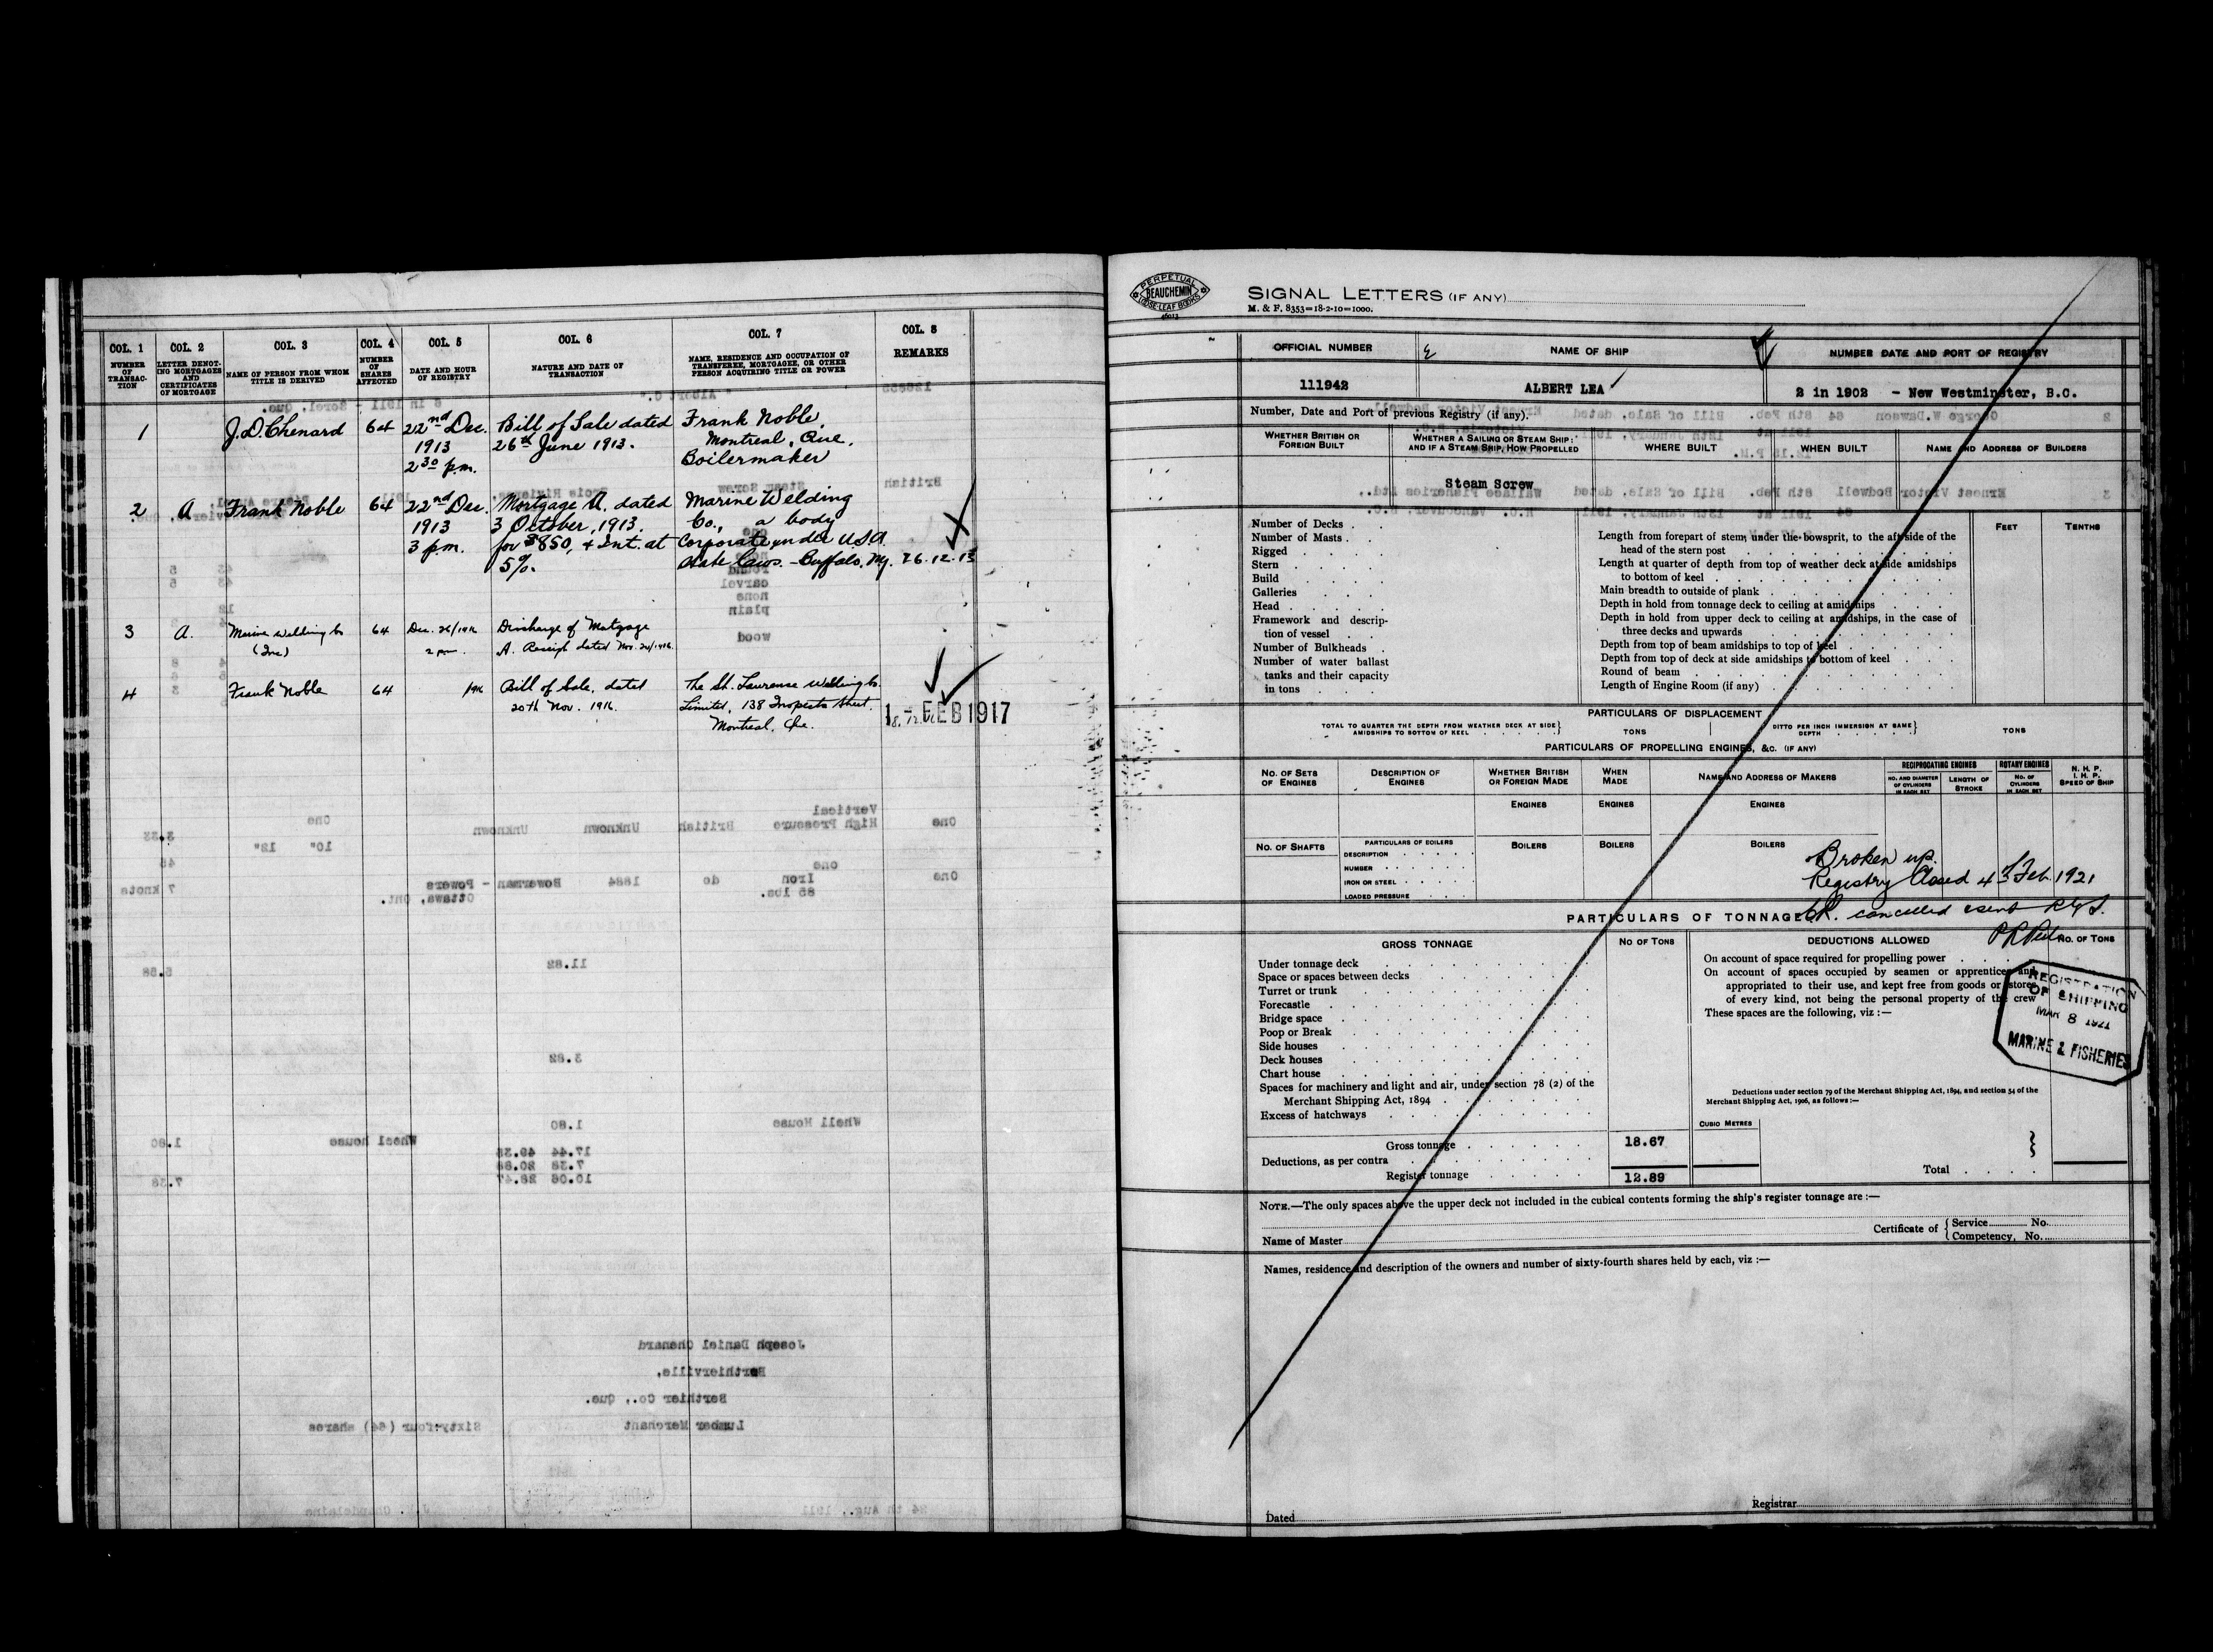 COL. 1
COL. 2
COL. 3
COL. 4
COL. 5
COL. 6
COL. 7
COL. 8
NUMBER OF TRANSAC-TION
LETTER DENOT-ING MORTGAGES AND CERTIFICATES OF MORTGAGE
NAME OF PERSON FROM WHOM TITLE IS DERIVED
NUMBER OF SHARES AFFECTED
DATE AND HOUR OF REGISTRY
NATURE AND DATE OF TRANSACTION
NAME, RESIDENCE AND OCCUPATION OF TRANSFEREE, MORTGAGEE, OR OTHER PERSON ACQUIRING TITLE OR POWER
REMARKS
1 J.D. Chenard 64 22nd Dec. Bill of Sale dated Frank Noble,
1913 26th June 1913. Montreal, Que,
2 30 p.m. Boilermaker
2 A Frank Noble 64 22nd Dec. Mortgage A. dated Marine Welding
1913 3 October, 1913. Co., a body
3 p.m. for $850, & Int. at Corporate under U.S.A.
5%. State Laws. - Buffalo, Ny. 26.12.13
3 A. Marine Welding Co 64 Dec. 26/1916 Discharge of Matgage
(Inc) 2 pm. A. Receipt dated Nov. 24/1916.
4 Frank Noble 64 1916 Bill of Sale, dated The St. Lawrence Welding Co.
20th Nov. 1916. Limited, 138 Street,
Montreal, Que.
1 - FEB 1917
PERPETUAL
BEAUCHEMIN
LOOSE-LEAF BOOKS
SIGNAL LETTERS (IF ANY)
M. & F. 8353=18-2-10=1000.
OFFICIAL NUMBER
NAME OF SHIP
NUMBER DATE AND PORT OF REGISTRY
111942
ALBERT LEA
2 in 1902 - New Westminster, B.C.
Number, Date and Port of previous Registry (if any).
WHETHER BRITISH OR FOREIGN BUILT
WHETHER A SAILING OR STEAM SHIP; AND IF A STEAM SHIP, HOW PROPELLED
WHERE BUILT
WHEN BUILT
NAME AND ADDRESS OF BUILDERS
Steam Screw
FEET
TENTHS
Number of Decks
Number of Masts
Rigged
Stern
Build
Galleries
Head
Framework and descrip-
tion of vessel
Number of Bulkheads
Number of water ballast
tanks and their capacity
in tons
Length from forepart of stem, under the bowsprit, to the aft side of the
head of the stern post
Length at quarter of depth from top of weather deck at side amidships
to bottom of keel
Main breadth to outside of plank
Depth in hold from tonnage deck to ceiling at amidships
Depth in hold from upper deck to ceiling at amidships, in the case of
three decks and upwards
Depth from top of beam amidships to top of keel
Depth from top of deck at side amidships to bottom of keel
Round of beam
Length of Engine Room (if any)
PARTICULARS OF DISPLACEMENT
TOTAL TO QUARTER THE DEPTH FROM WEATHER DECK AT SIDE
AMIDSHIPS TO BOTTOM OF KEEL
TONS
DITTO PER INCH IMMERSION AT SAME
DEPTH
TONS
PARTICULARS OF PROPELLING ENGINES, &C. (IF ANY)
NO. OF SETS OF ENGINES
DESCRIPTION OF ENGINES
WHETHER BRITISH OR FOREIGN MADE
WHEN MADE
NAME AND ADDRESS OF MAKERS
RECIPROCATING ENGINES
NO. AND DIAMETER OF CYLINDERS IN EACH SET
LENGTH OF STROKE
ROTARY ENGINES
NO. OF CYLINDERS IN EACH SET
N. H. P.
I. H. P.
SPEED OF SHIP
ENGINES
ENGINES
ENGINES
NO. OF SHAFTS
PARTICULARS OF BOILERS
DESCRIPTION
NUMBER
IRON OR STEEL
LOADED PRESSURE
BOILERS
BOILERS
BOILERS
Broken up.
Registry Closed 4 Feb. 1921
PARTICULARS OF TONNAGE
CR. cancelled
GROSS TONNAGE
NO OF TONS
DEDUCTIONS ALLOWED
NO. OF TONS
Under tonnage deck
Space or spaces between decks
Turret or trunk
Forecastle
Bridge space
Poop or Break
Side houses
Deck houses
Chart house
Spaces for machinery and light and air, under section 78 (2) of the
Merchant Shipping Act, 1894
Excess of hatchways
On account of space required for propelling power
On account of spaces occupied by seamen or apprentices and
appropriated to their use, and kept free from goods or stores
of every kind, not being the personal property of the crew
These spaces are the following, viz :—
REGISTRATION
OF SHIPPING
MAR 8 1921
MARINE & FISHERIES
Deductions under section 79 of the Merchant Shipping Act, 1894, and section 54 of the
Merchant Shipping Act, 1906, as follows :—
CUBIC METRES
Gross tonnage 18.67
Deductions, as per contra
Register tonnage 12.89
Total
NOTE.—The only spaces above the upper deck not included in the cubical contents forming the ship's register tonnage are :—
Name of Master
Certificate of { Service No.
Competency, No.
Names, residence and description of the owners and number of sixty-fourth shares held by each, viz :—
Dated
Registrar